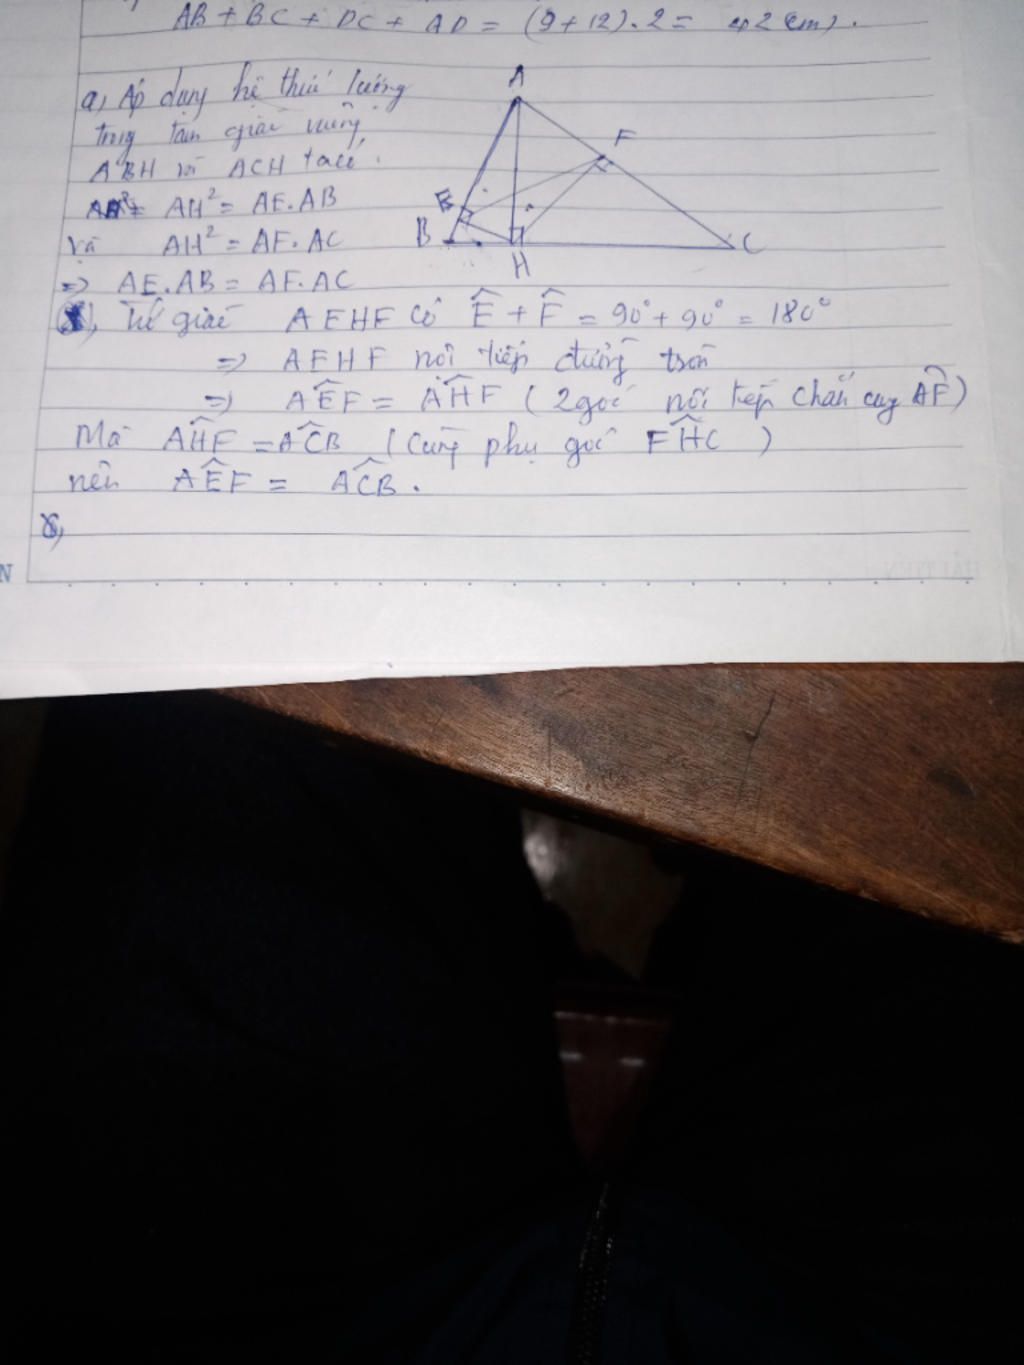 AB + BC + DC + AD = (9+12).2 = 42 (cm).
a, Áp dụng hệ thức lượng
trong tam giác vuông
ABH và ACH ta có:
AH² = AE.AB
và AH² = AF.AC
=> AE.AB = AF.AC
A
F
E
B
H
C
Tứ giác AEHF có Ê + F̂ = 90° + 90° = 180°
=> AEHF nội tiếp đường tròn
=> AÊF = AĤF (2 góc nội tiếp chắn cung AF)
Mà AĤF = AĈB (cùng phụ góc FĤC)
nên AÊF = AĈB.
N